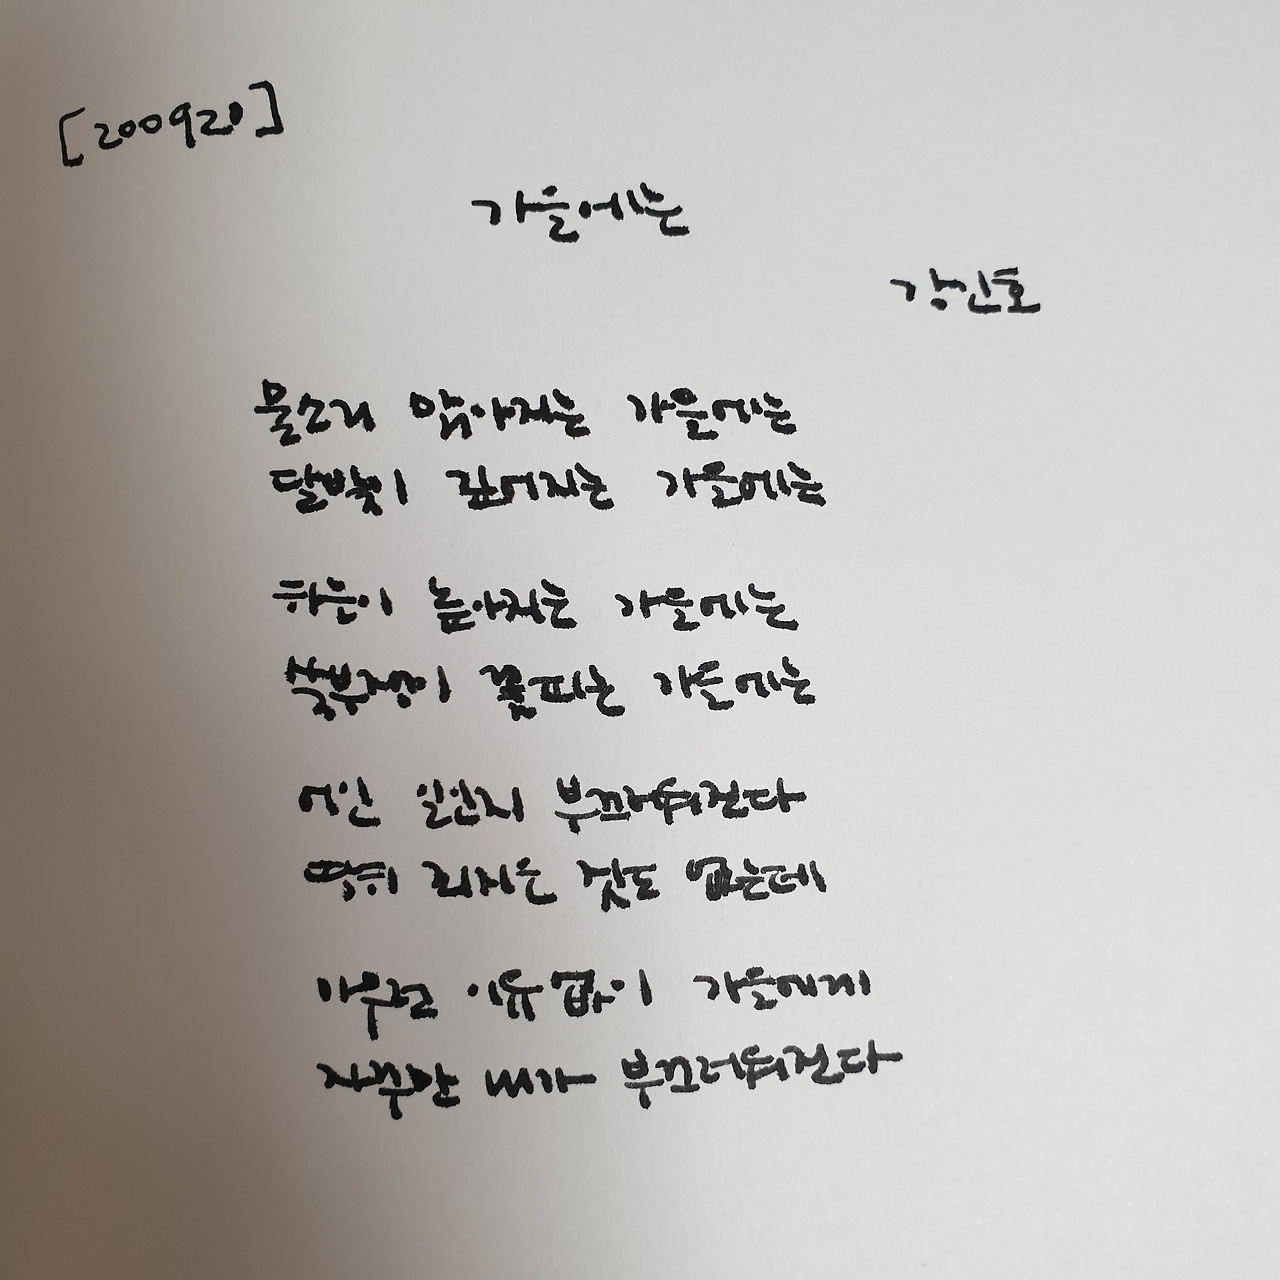 [200920]
가을에는
강인호
물소리 맑아지는 가을에는
달빛이 깊어지는 가을에는
하늘이 높아지는 가을에는
쑥부쟁이 꽃피는 가을에는
어인 일인지 부끄러워진다
딱히 죄지은 것도 없는데
아무런 이유없이 가을에게
자꾸만 내가 부끄러워진다